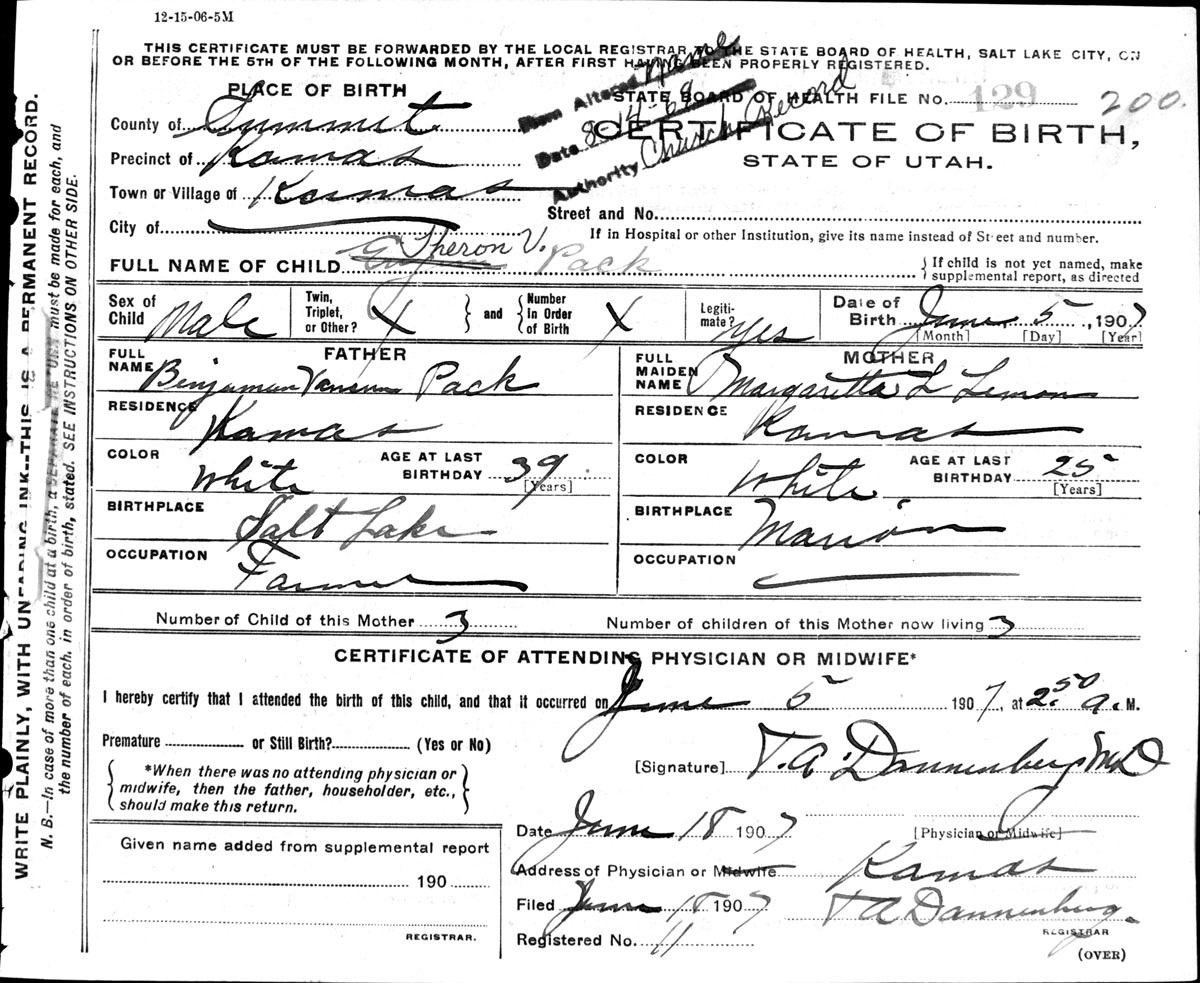 12-15-06-5M
THIS CERTIFICATE MUST BE FORWARDED BY THE LOCAL REGISTRAR TO THE STATE BOARD OF HEALTH, SALT LAKE CITY, ON
OR BEFORE THE 5TH OF THE FOLLOWING MONTH, AFTER FIRST HAVING BEEN PROPERLY REGISTERED.
Item Altered Name
Date 8-14-68
Authority Church Record
PLACE OF BIRTH
STATE BOARD OF HEALTH FILE No. 129 200.
County of Summit
CERTIFICATE OF BIRTH,
Precinct of Kamas
STATE OF UTAH.
Town or Village of Kamas
Street and No.
City of
If in Hospital or other Institution, give its name instead of Street and number.
FULL NAME OF CHILD Theron V. Pack
If child is not yet named, make
supplemental report, as directed
Sex of Child Male
Twin, Triplet, or Other? X
and
Number In Order of Birth X
Legitimate? Yes
Date of Birth June 5, 1907
[Month] [Day] [Year]
FATHER
FULL NAME Benjamin Pack
RESIDENCE Kamas
COLOR White AGE AT LAST BIRTHDAY 39 [Years]
BIRTHPLACE Salt Lake
OCCUPATION Farmer
MOTHER
FULL MAIDEN NAME Margaretta L Lemon
RESIDENCE Kamas
COLOR White. AGE AT LAST BIRTHDAY 25 [Years]
BIRTHPLACE Marion
OCCUPATION
Number of Child of this Mother 3 Number of children of this Mother now living 3
CERTIFICATE OF ATTENDING PHYSICIAN OR MIDWIFE*
I hereby certify that I attended the birth of this child, and that it occurred on June 5 1907, at 2.50 a. M.
Premature or Still Birth? (Yes or No)
[Signature] T. A. Dannenberg MD
*When there was no attending physician or
midwife, then the father, householder, etc.,
should make this return.
Date June 18 1907
[Physician or Midwife]
Given name added from supplemental report
Address of Physician or Midwife Kamas
190
Filed June 18 1907 T A Dannenberg
REGISTRAR
REGISTRAR.
Registered No. 11
(OVER)
WRITE PLAINLY, WITH UNFADING INK--THIS IS A PERMANENT RECORD.
N. B.—In case of more than one child at a birth, a SEPARATE RETURN must be made for each, and
the number of each, in order of birth, stated. SEE INSTRUCTIONS ON OTHER SIDE.